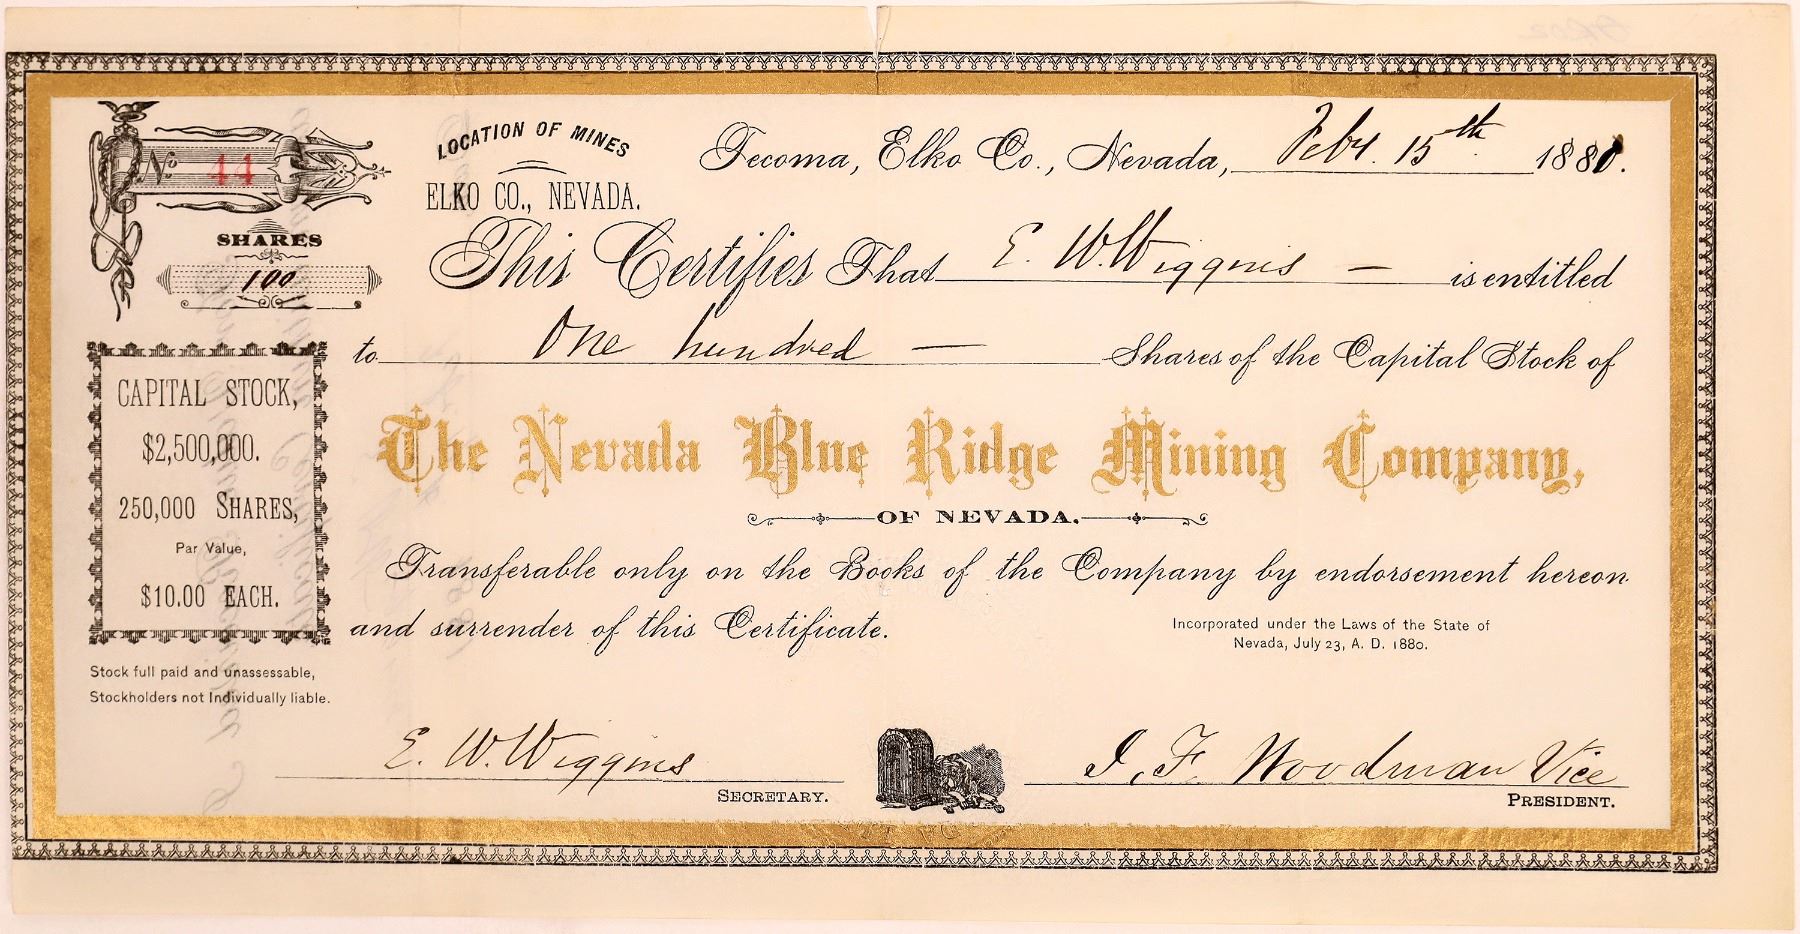 No 44
LOCATION OF MINES
ELKO CO., NEVADA.
Tecoma, Elko Co., Nevada, Feby. 15th 1881.
SHARES
100
This Certifies That E. W. Wiggins — is entitled
to One hundred — Shares of the Capital Stock of
The Nevada Blue Ridge Mining Company,
OF NEVADA.
Transferable only on the Books of the Company by endorsement hereon
and surrender of this Certificate.
Incorporated under the Laws of the State of
Nevada, July 23, A. D. 1880.
CAPITAL STOCK,
$2,500,000.
250,000 SHARES,
Par Value,
$10.00 EACH.
Stock full paid and unassessable,
Stockholders not Individually liable.
E. W. Wiggins
SECRETARY.
J. F. Woodman Vice
PRESIDENT.